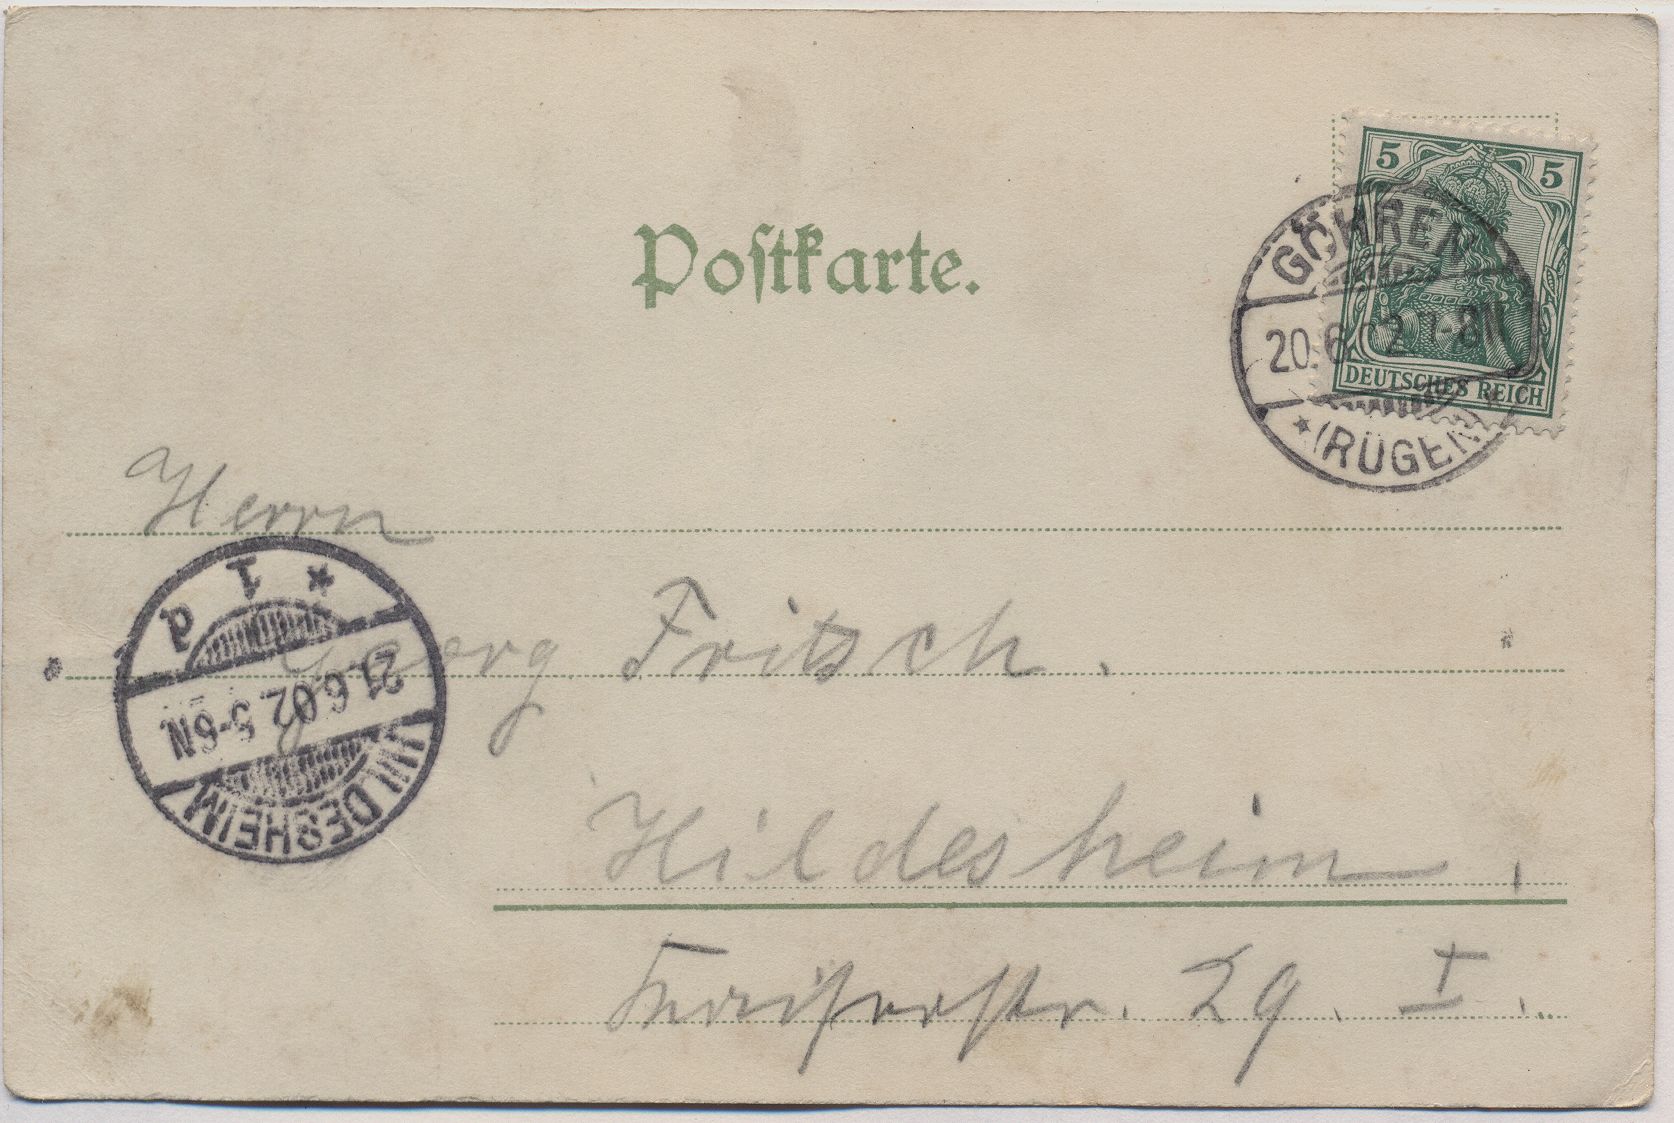 Postkarte.
5 5
DEUTSCHES REICH
GÖHREN
20.6.02 7-8N
* (RÜGEN)
Herrn
Georg Fritsch.
* 1 d
21.6.02. 5-6N.
HILDESHEIM
Hildesheim.
29. I.